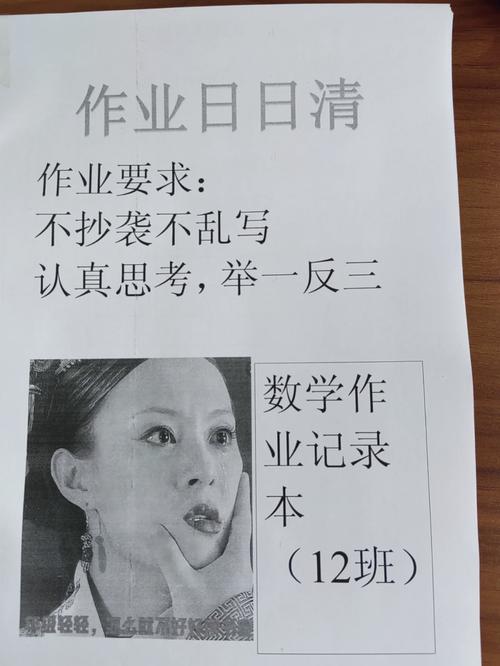 作业日日清
作业要求：
不抄袭不乱写
认真思考，举一反三
数学作
业记录
本
（12班）
年纪轻轻，怎么就不好好